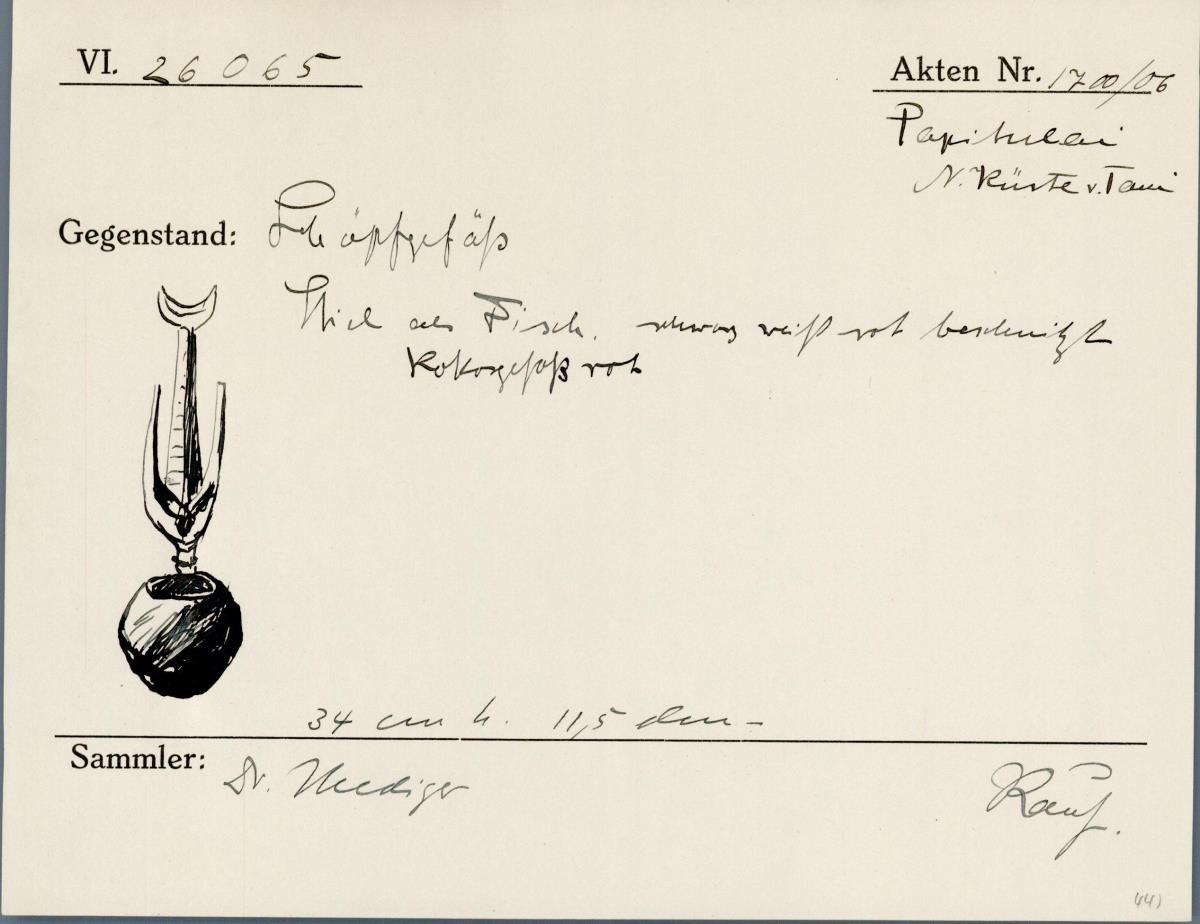 VI. 26065
Akten Nr. 1700/06
Papitulai
N. Küste v. Taui
Gegenstand: Schöpfgefäß
Stiel als Fisch. schwarz weiß rot beschnitzt
Kokosgefäß rot
34 cm h. 11,5 dm
Sammler: Dr.
Kauf.